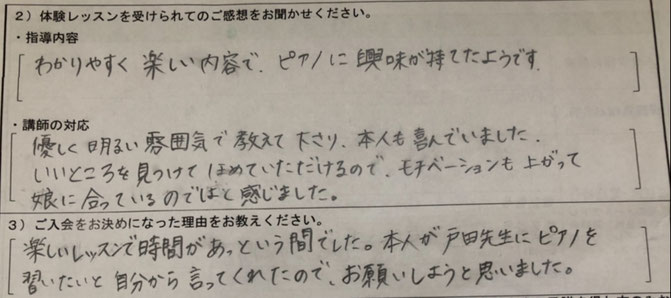 2）体験レッスンを受けられてのご感想をお聞かせください。
・指導内容
わかりやすく 楽しい内容で、ピアノに興味が持てたようです
・講師の対応
優しく明るい雰囲気で教えて下さり、本人も喜んでいました。
いいところを見つけてほめていただけるので、モチベーションも上がって
娘に合っているのではと感じました。
3）ご入会をお決めになった理由をお教えください。
楽しいレッスンで時間があっという間でした。本人が戸田先生にピアノを
習いたいと自分から言ってくれたので、お願いしようと思いました。